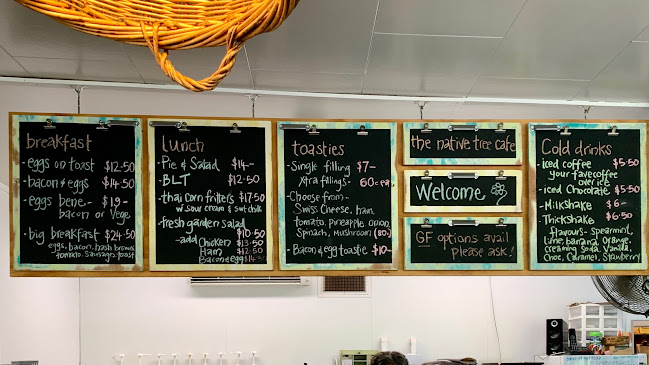 breakfast
-eggs on toast $12.50
-bacon & eggs $14.50
-eggs bene- $19-
bacon or Vege
-big breakfast $24.50
eggs, bacon, hash browns,
tomato, Sausages, toast
lunch
-Pie & Salad $14-
-BLT $12.50
-thai corn fritters $17.50
w. sour cream & swt chilli
-fresh garden salad $10.50
-add Chicken $13.50
Ham $12.50
Bacon & egg
toasties
-Single filling $7-
Xtra fillings- 60c ea
-Choose from-
Swiss Cheese, ham,
tomato, pineapple, onion,
Spinach, Mushroom (80c)
-Bacon & egg toastie $10-
the native tree cafe
Welcome
GF options avail
please ask!
Cold drinks
iced coffee $5.50
your fave coffee
over ice
-iced Chocolate $5.50
-Milkshake $6-
-Thickshake $6.50
flavours - Spearmint,
Lime, banana, Orange,
creaming Soda, Vanilla,
Choc, Caramel, Strawberry